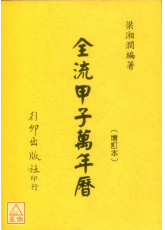 梁湘潤編著
全流甲子萬年曆
（增訂本）
行卯出版社印行